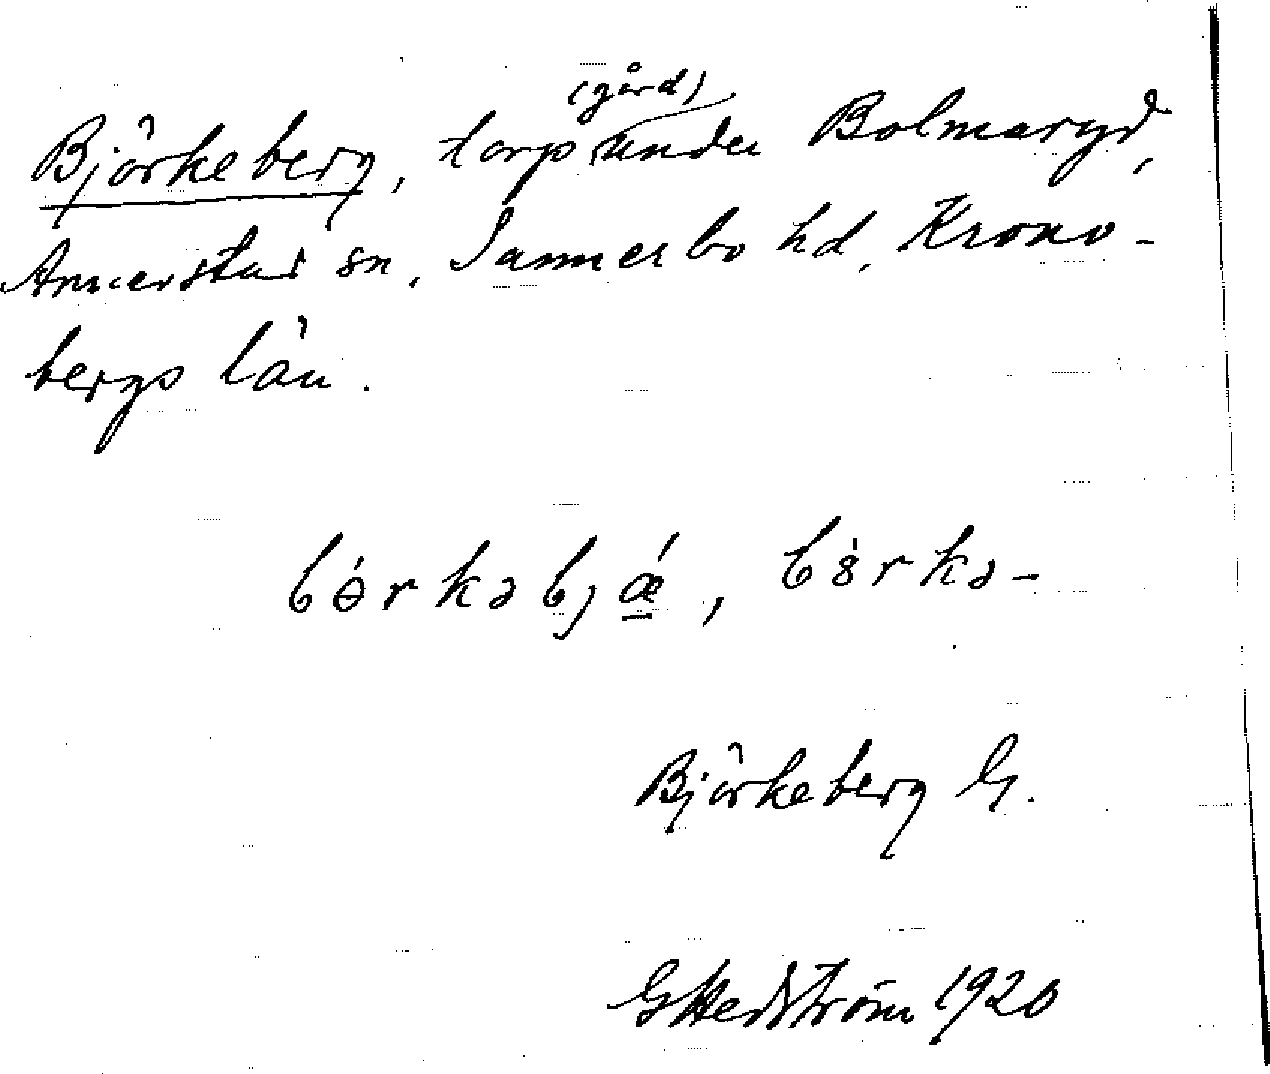 Björkeberg, torp (gård) under Bolmaryd,
Annerstad sn, Sunnerbo hd, Krono-
bergs län.
bɵ́rkəbjǽ, bɵ̀rkə-
Björkeberg G.
G Hedström 1920